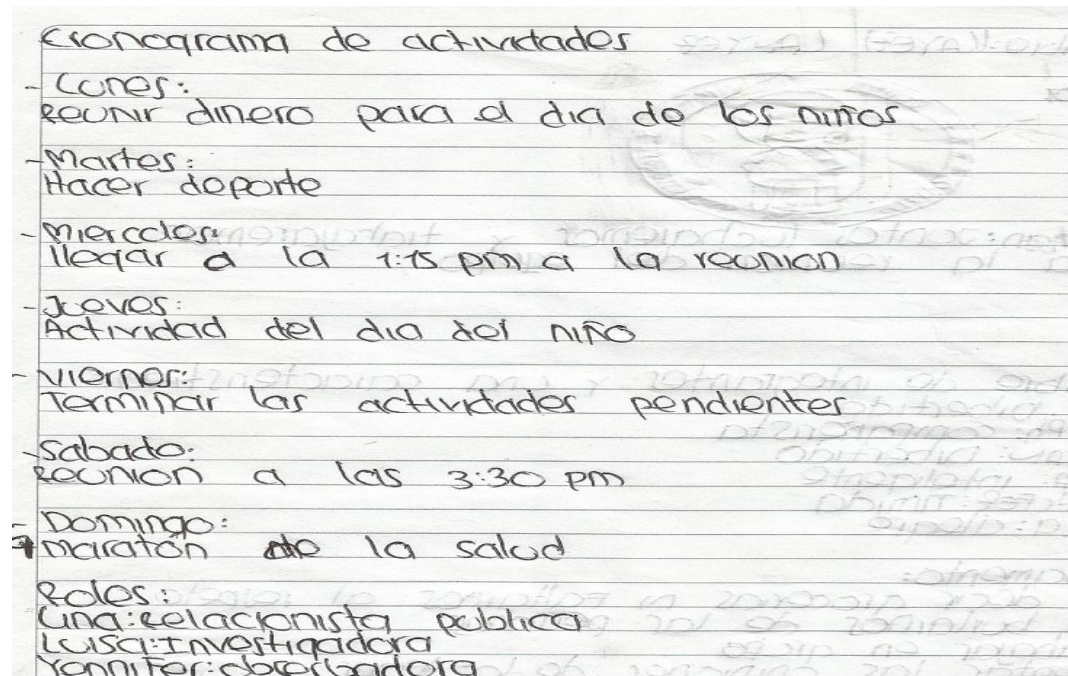 Cronograma de actividades
- Lunes:
Reunir dinero para el dia de los niños
- Martes:
Hacer deporte
- Miercoles:
llegar a la 1:15 pm a la reunion
- Jueves:
Actividad del dia del niño
- Viernes:
Terminar las actividades pendientes
- Sabado:
Reunion a las 3:30 pm
- Domingo:
Maratón de la salud
Roles:
Lina: Relacionista publica
Luisa: Investigadora
Yennifer: obserbadora